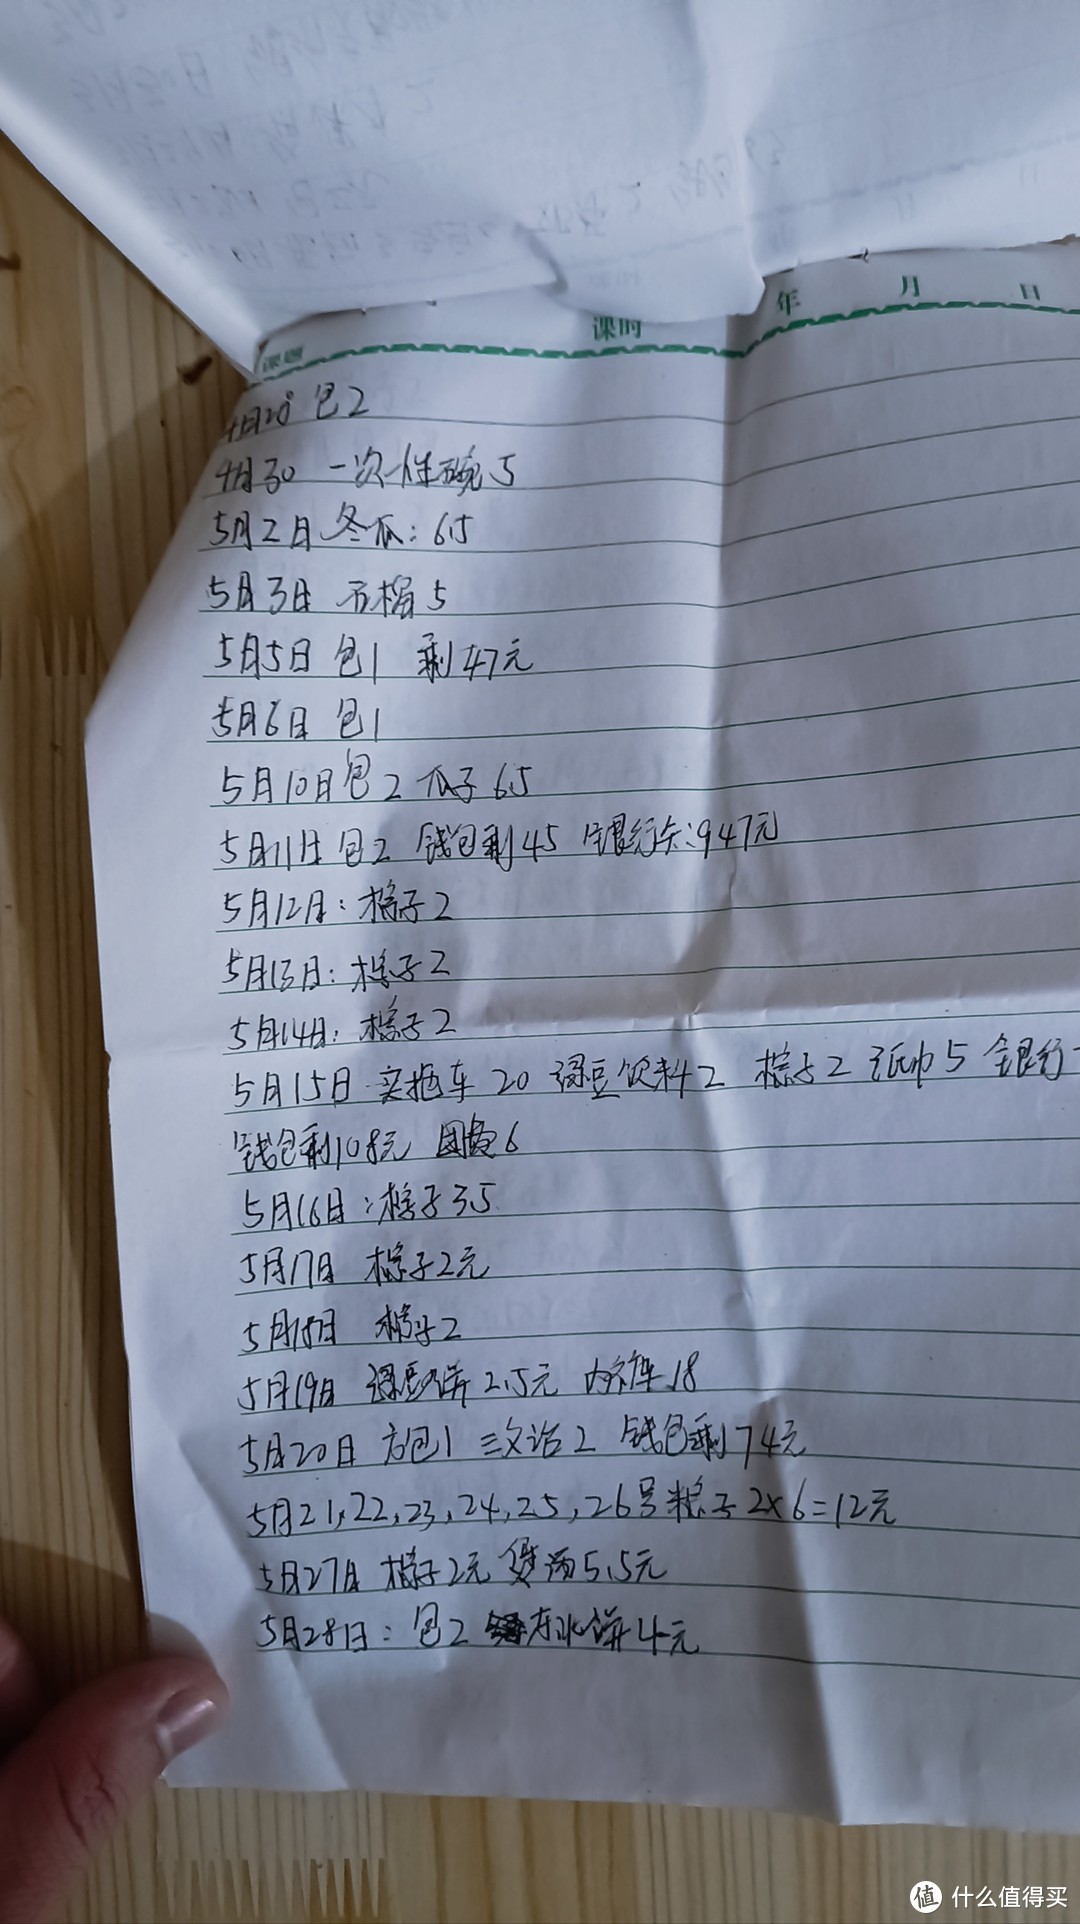 课题 课时 年 月 日
4月28 包2
4月30 一次性碗5
5月2日 冬瓜：6.5
5月3日 5
5月5日 包1 剩47元
5月6日 包1
5月10日 包2 瓜子6.5
5月11日 包2 钱包剩45 银行卡：947元
5月12日：粽子2
5月13日：粽子2
5月14日：粽子2
5月15日 拖车 20 绿豆饮料2 粽子2 纸巾5 银行
钱包剩108元 团费6
5月16日：粽子3.5
5月17日 粽子2元
5月18日 粽子2
5月19日 绿豆饼2.5元 内裤 18
5月20日 方包1 三文治2 钱包剩74元
5月21,22,23,24,25,26号粽子2×6=12元
5月27日 粽子2元 煲汤5.5元
5月28日：包2 饼4元
值 什么值得买